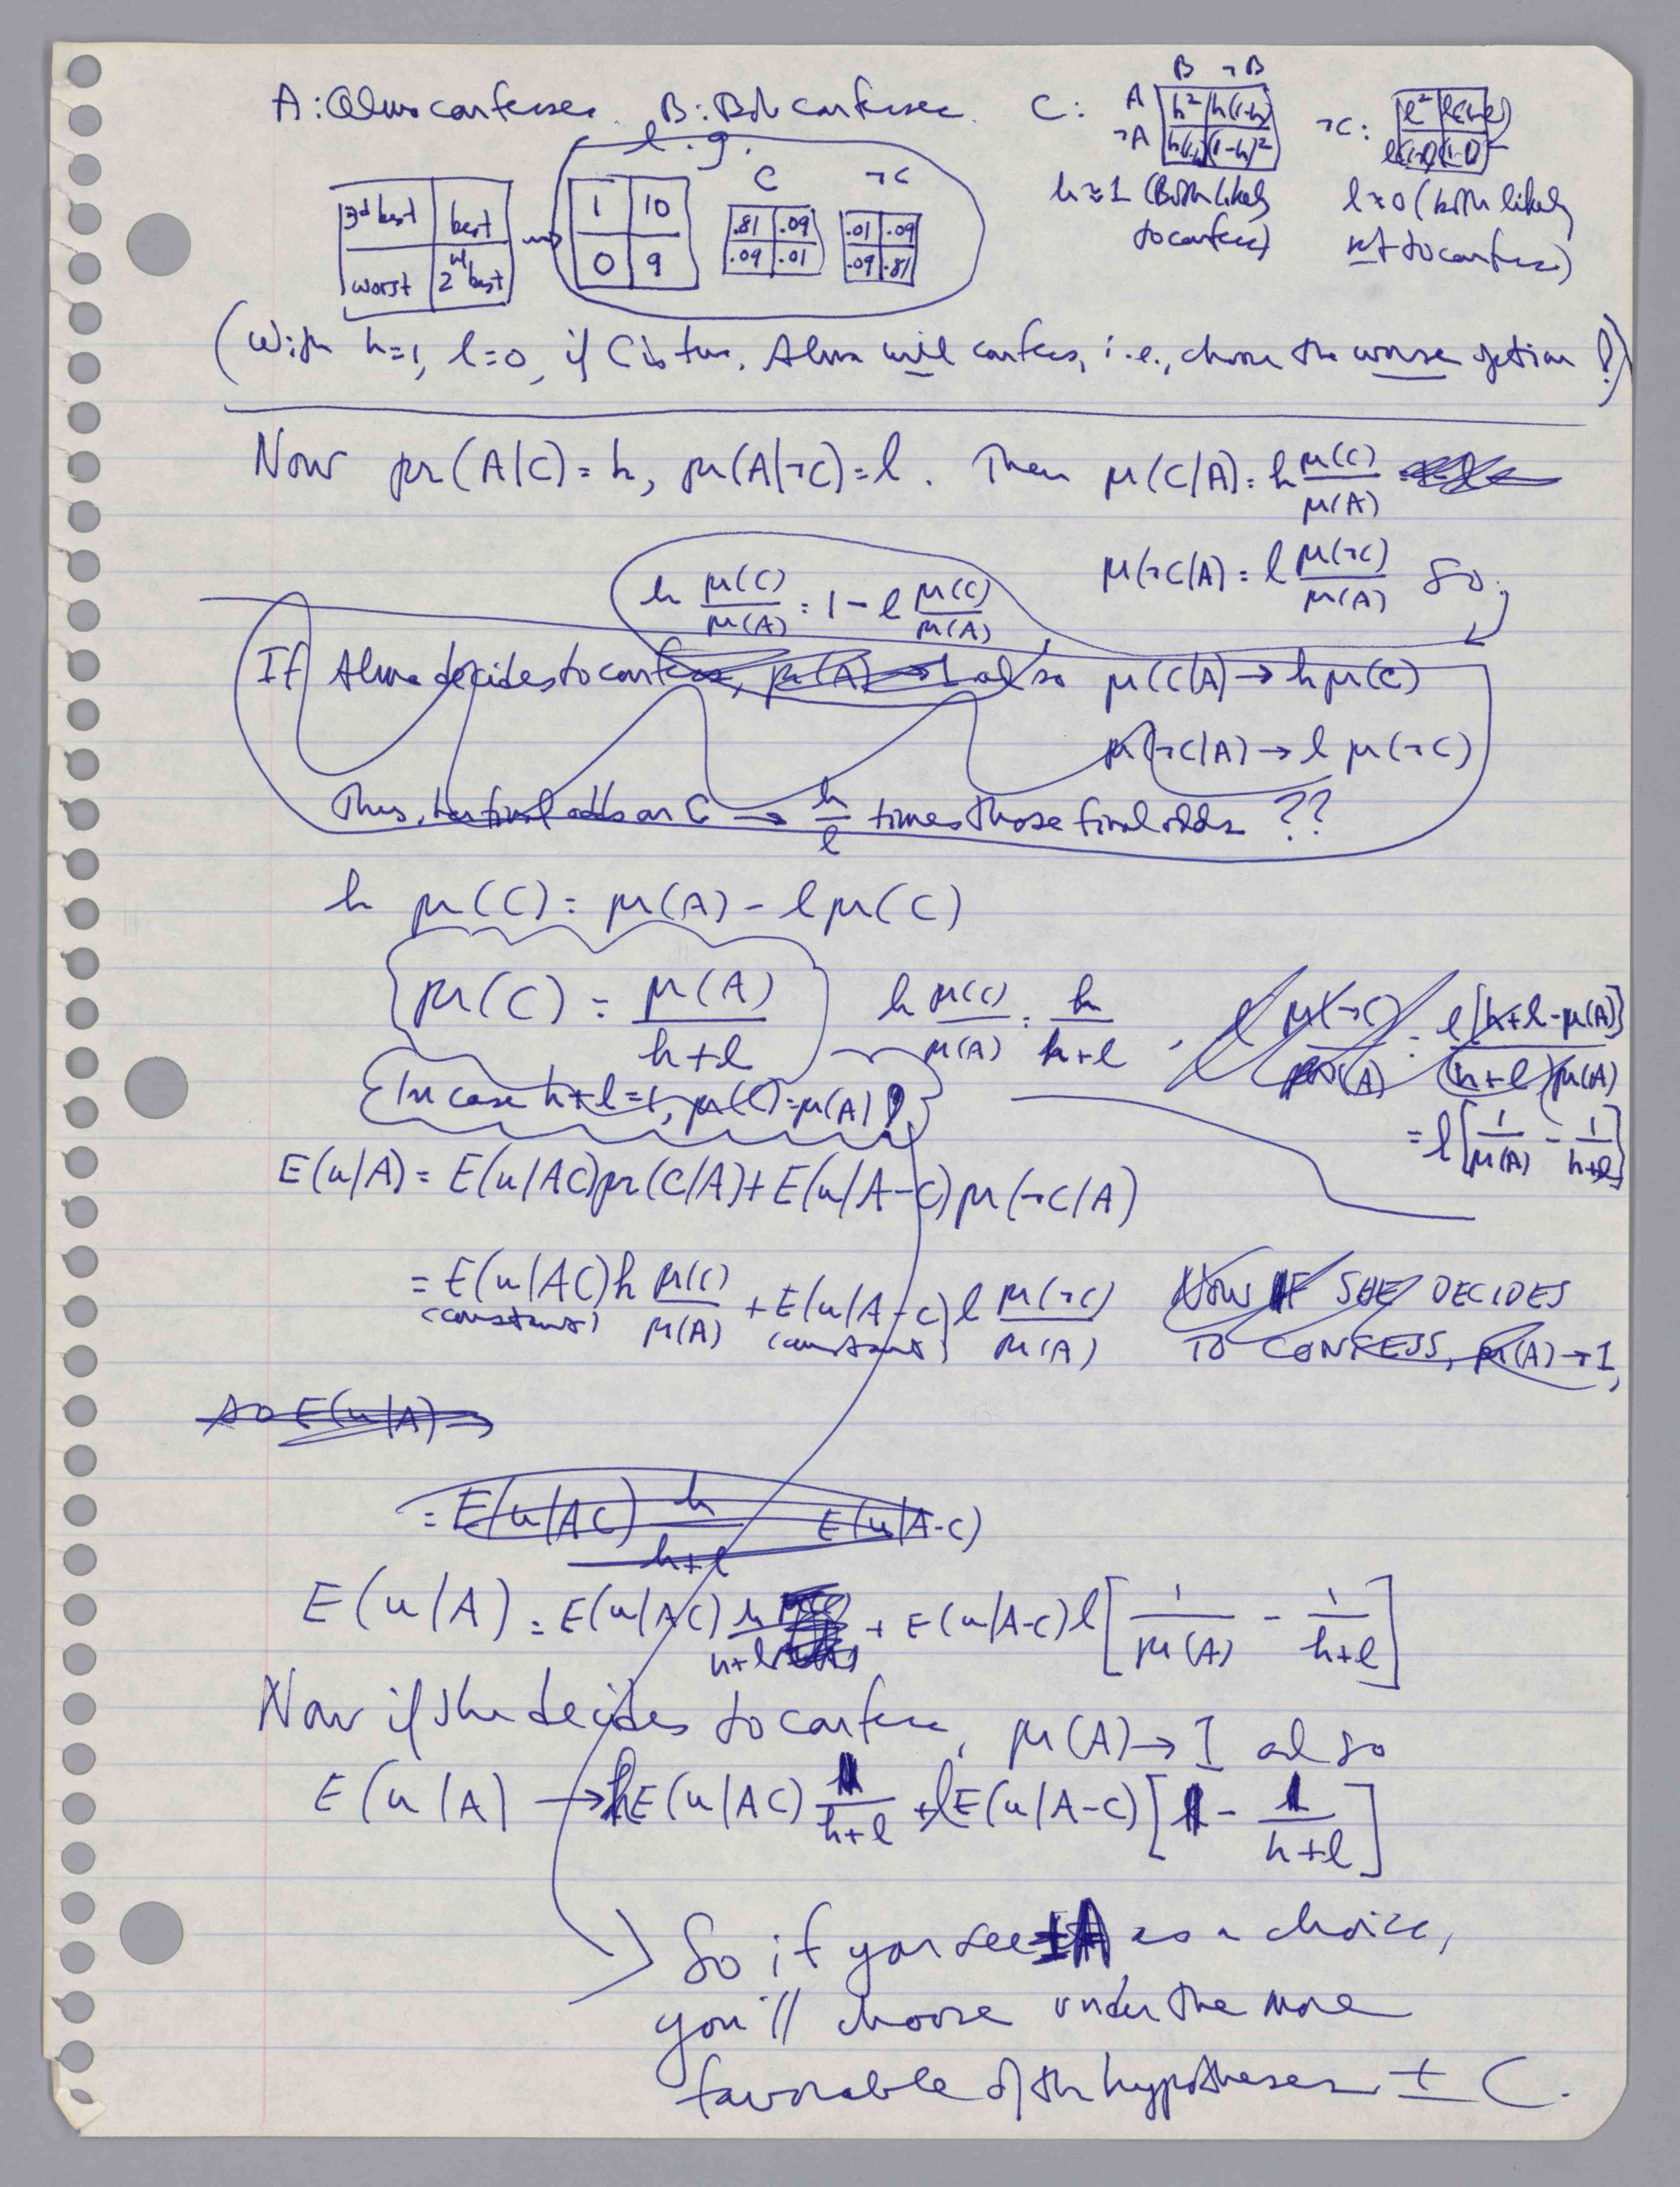 A: Alma confesses. B: Bob confesses. C:
B ¬B
A h² h(1-h)
¬A h(1-h) (1-h)²
¬C: l² l(1-l)
l(1-l) (1-l)²
h≈1 (Both likely to confess)
l≈0 (both likely not to confess)
3d best best
worst 2nd best
e.g.
1 10
0 9
C
.81 .09
.09 .01
¬C
.01 .09
.09 .81
(With h=1, l=0, if C is true, Alma will confess, i.e., choose the worse option!)
Now pr(A|C)=h, pr(A|¬C)=l. Then pr(C/A)=h pr(C)/pr(A)
pr(¬C/A)=l pr(¬C)/pr(A) so
h pr(C)/pr(A) = 1 - l pr(C)/pr(A)
If Alma decides to confess, pr(A)→1 also so pr(C/A)→h pr(C)
pr(¬C/A)→l pr(¬C)
Thus, her final odds on C → h/l times those final odds ??
h pr(C) = pr(A) - l pr(C)
pr(C) = pr(A)/(h+l) h pr(C)/pr(A) = h/(h+l), l pr(¬C)/pr(A) = l[h+l-pr(A)]/(h+l)pr(A)
In case h+l=1, pr(C)=pr(A)!
= l[1/pr(A) - 1/(h+l)]
E(u/A) = E(u/AC)pr(C/A)+E(u/A-C)pr(¬C/A)
= E(u/AC)h pr(C)/pr(A) + E(u/A-C)l pr(¬C)/pr(A) NOW IF SHE DECIDES
(constant) (constant) TO CONFESS, pr(A)→1,
so E(u/A)→
= E(u/AC) h/(h+l) E(u/A-C)
E(u/A) = E(u/AC) h/(h+l) + E(u/A-C) l[1/pr(A) - 1/(h+l)]
Now if she decides to confess, pr(A)→1 and so
E(u/A) → hE(u/AC) 1/(h+l) + lE(u/A-C)[1 - 1/(h+l)]
So if you see ±A as a choice,
you'll choose under the more
favorable of the hypotheses ± C.